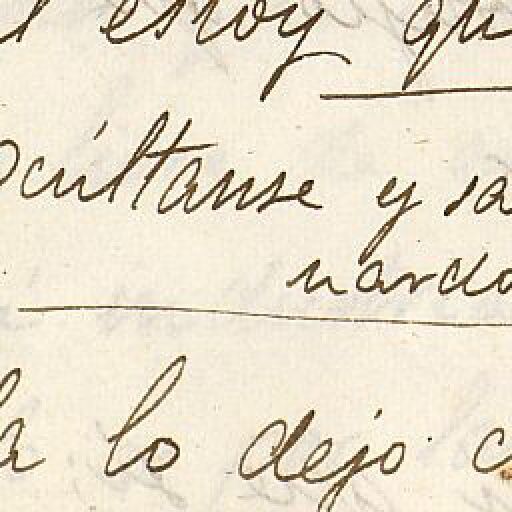 estoy qu
Ocúltanse y sa
nardo
la lo dejo c